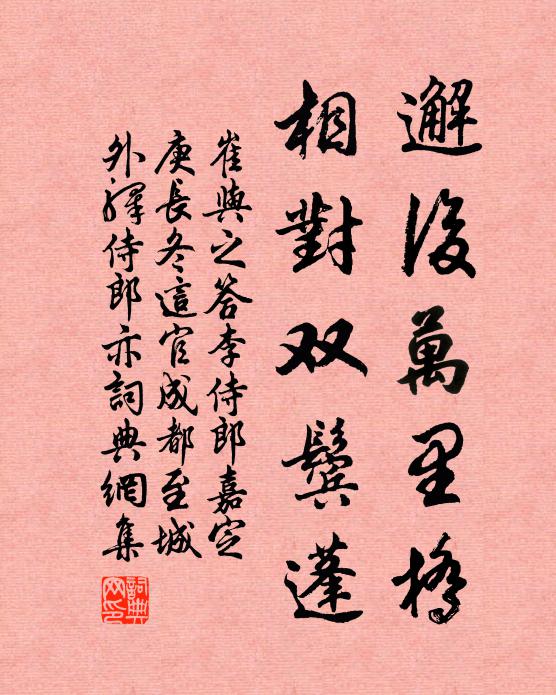 邂後萬里橋
相對双鬢蓬
崔與之答李侍郎嘉定
庚長冬這官成都至城
外驛侍郎亦詞典網集
詞典
网印